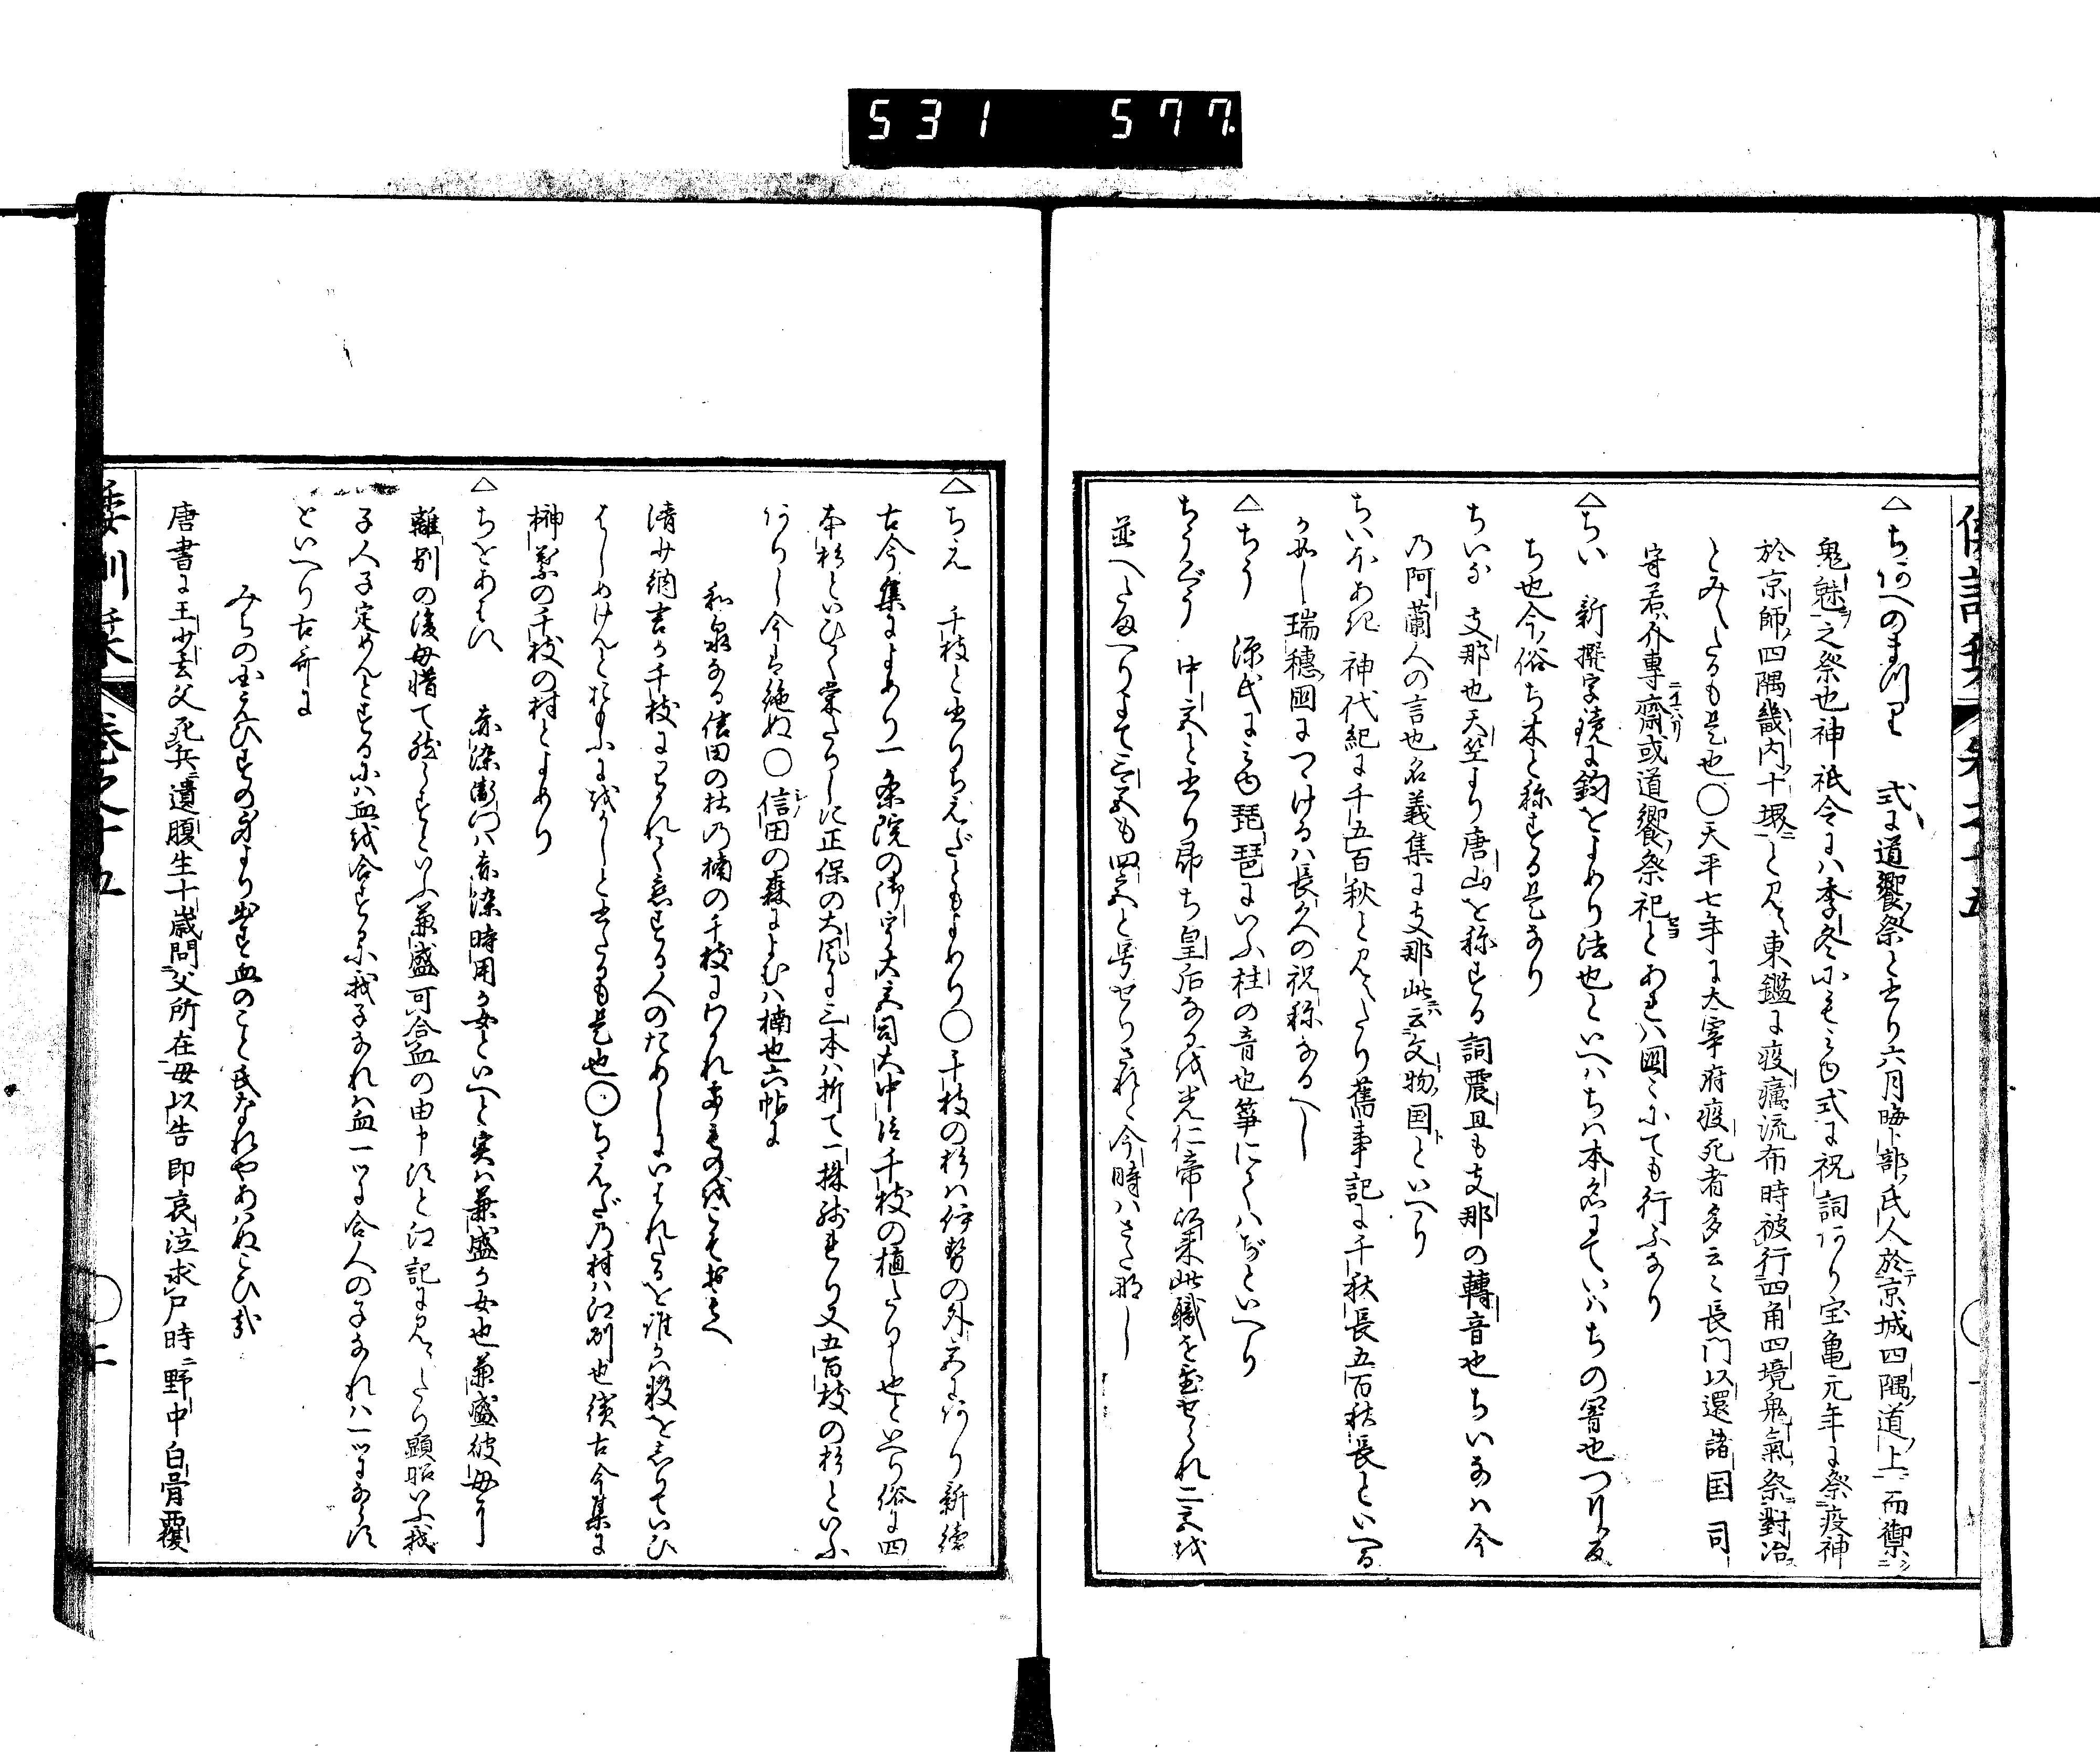 531 577.
△ちあへのまつり 式に道饗祭と書り六月晦卜部氏人於京城四隅道上而禦
鬼魅之祭也神祇令には季冬にもみゆ式に祝詞あり宝亀元年に祭疫神
於京師四隅畿内十堺と見え東鑑に疫癘流布時被行四角四境鬼氣祭對治
とみえたるも是也○天平七年に大宰府疫死者多云々長門以還諸国司
守若介専齋或道饗祭祀とあれは國々にても行ふなり
△ちい 新撰字鏡に鈎をよめり法也といへハちハ本名にていハちの響也つり反
ち也今俗ち木と称する是なり
ちいな 支那也天竺より唐山を称する詞震旦も支那の轉音也ちいなハ今
乃阿蘭人の言也名義集に支那此云文物国といへり
ちいほあき 神代紀に千五百秋と見えたり舊事記に千秋長五百秋長といへる
か如し瑞穂國につけるハ長久の祝称なるへし
△ちう 源氏にみゆ琵琶にいふ柱の音也箏にてハぢといへり
ちうぐう 中宮と書り即ち皇后なるを光仁帝以来此職を置せられ二宮を
並へたまへりまて三宮も四宮と号せりされと今時ハさた那し
△ちえ 千枝と書りちえだともよめり○千枝の杉ハ伊勢の外宮にあり新續
古今集によめり一条院の御宇大宮司大中臣千枝の植たりし也といへり俗に四
本杉といひて栄たりしに正保の大風に三本ハ折て一株残れり又五百枝の杉といふ
ありし今は絶ぬ○信田の森によむハ楠也六帖に
和泉なる信田の杜乃楠の千枝にわかれてものをこそおもへ
清少納言か千枝にわかれて恋する人のためしにいはれたるを誰かハ数をしりていひ
はしめけんとおもふにをかしと書たるも是也○ちえだ乃村ハ江州也續古今集に
榊葉の千枝の村とよめり
△ちをあはす 赤染衛門ハ赤染時用か女といへと実は兼盛か女也兼盛彼母に
離別の後母惜て然らすといふ兼盛可合血の由申すと江記に見えたり顕昭いふ我
子人子定めんとするにハ血を合するに我子なれハ血一ツに合人の子なれハ一ツにならす
といへり古哥に
みちの国えひすの身より出す血のこと氏なれやあハぬこひ哉
唐書に王少玄父死兵遺腹生十歳問父所在母以告即哀泣求尸時野中白骨覆
倭訓栞 巻之十五 ○二